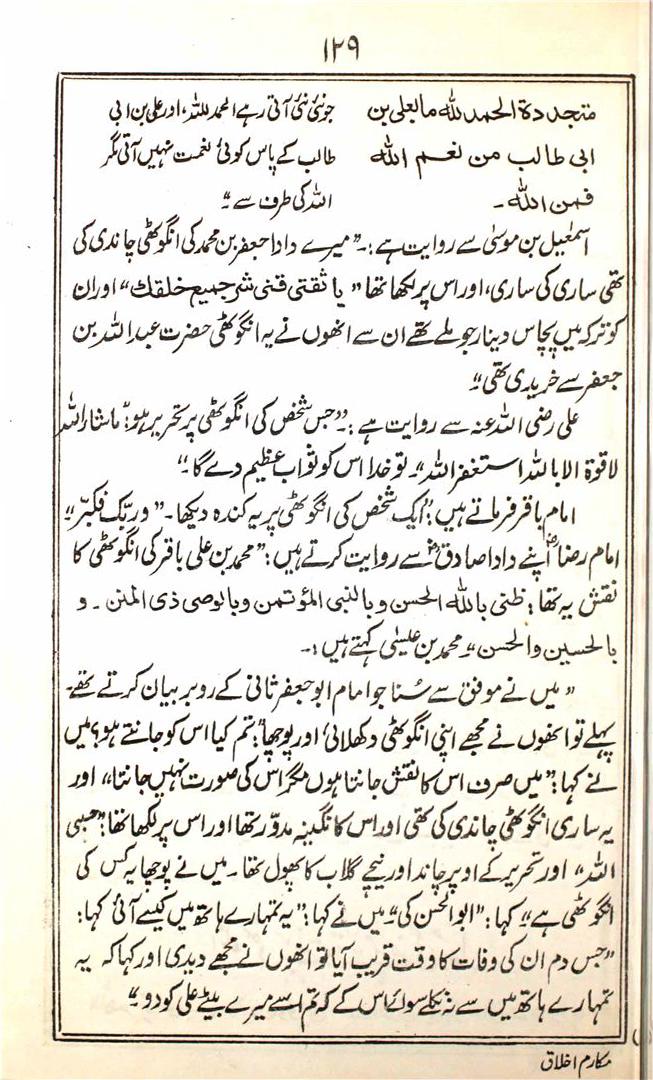 ۱۲۹
متجددة الحمد لله ما لعلی بن
ابی طالب من نعم الله
فمن الله۔
جو نئی نئی آتی رہے الحمد للہ، اور علی بن ابی
طالب کے پاس کوئی نعمت نہیں آتی مگر
اللہ کی طرف سے۔“
اسمٰعیل بن موسیٰ سے روایت ہے:۔ ”میرے دادا جعفر بن محمد کی انگوٹھی چاندی کی
تھی ساری کی ساری، اور اس پر لکھا تھا ”یا ثقتی قنی شر جمیع خلقك“ اور ان
کو ترکہ میں پچاس دینار جو ملے تھے ان سے انھوں نے یہ انگوٹھی حضرت عبد اللہ بن
جعفر سے خریدی تھی“
علی رضی اللہ عنہ سے روایت ہے :۔ ”جس شخص کی انگوٹھی پر تحریر ہو: ”ماشاء اللہ
لا قوة الا باللہ استغفر اللہ“۔ تو خدا اس کو ثواب عظیم دے گا۔“
امام باقر فرماتے ہیں: ”ایک شخص کی انگوٹھی پر یہ کندہ دیکھا۔ ”وربّک فکبّر“
امام رضاؑ اپنے دادا صادقؑ سے روایت کرتے ہیں: ”محمد بن علی باقر کی انگوٹھی کا
نقش یہ تھا: ظنی بالله الحسن وبالنبی المؤتمن وبالوصی ذی المنن ۔ و
بالحسین والحسن“۔ محمد بن عیسیٰ کہتے ہیں:۔
”میں نے موفق سے سُنا جو امام ابو جعفر ثانی کے روبرو بیان کرتے تھے۔
پہلے تو انھوں نے مجھے اپنی انگوٹھی دکھلائی اور پوچھا: ”تم کیا اس کو جانتے ہو؟ میں
نے کہا: ”میں صرف اس کا نقش جانتا ہوں مگر اس کی صورت نہیں جانتا“ اور
یہ ساری انگوٹھی چاندی کی تھی اور اس کا نگینہ مدوّر تھا اور اس پر لکھا تھا: ”حسبی
اللہ“ اور تحریر کے اوپر چاند اور نیچے گلاب کا پھول تھا۔ میں نے پوچھا یہ کس کی
انگوٹھی ہے“ کہا: ”ابو الحسن کی“ میں نے کہا: ”یہ تمہارے ہاتھ میں کیسے آئی کہا:
”جس دم ان کی وفات کا وقت قریب آیا تو انھوں نے مجھے دیدی اور کہا کہ یہ
تمہارے ہاتھ میں سے نہ نکلے سوائے اس کے کہ تم اسے میرے بیٹے علی کو دو۔“
مکارم اخلاق